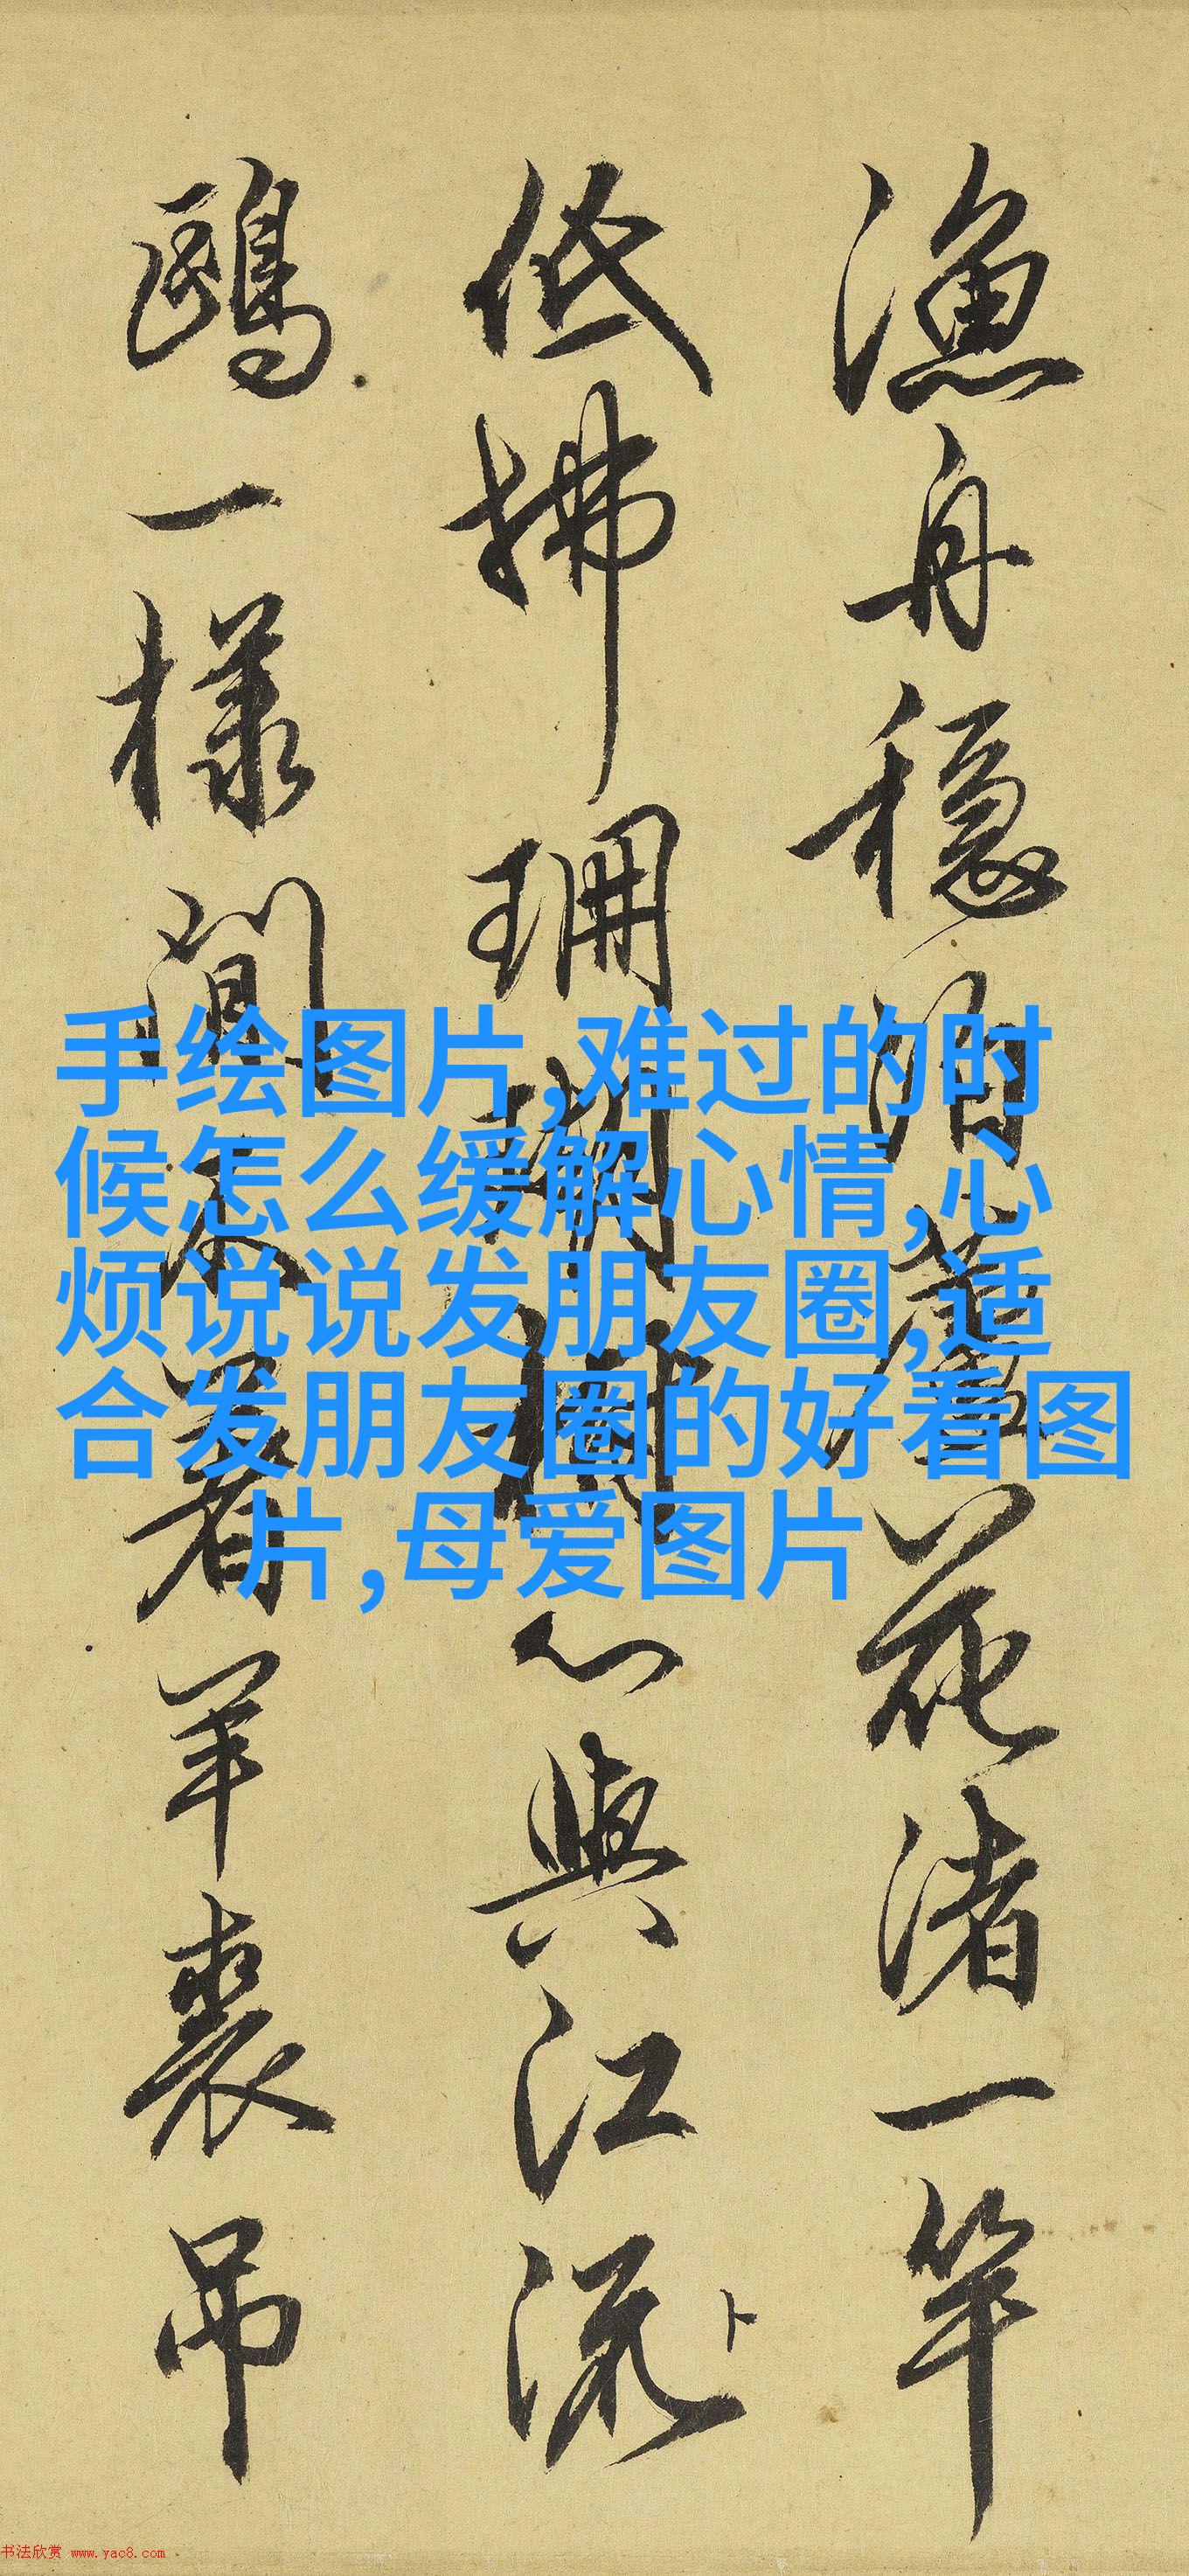 漁舟穩泊蘆花渚一竿
低拂珊瑚樹心與江流
鷗一樣閒不著羊裘吊
手绘图片,难过的时
候怎么缓解心情,心
烦说说发朋友圈,适
合发朋友圈的好看图
片,母爱图片
书法欣赏 www.yac8.com